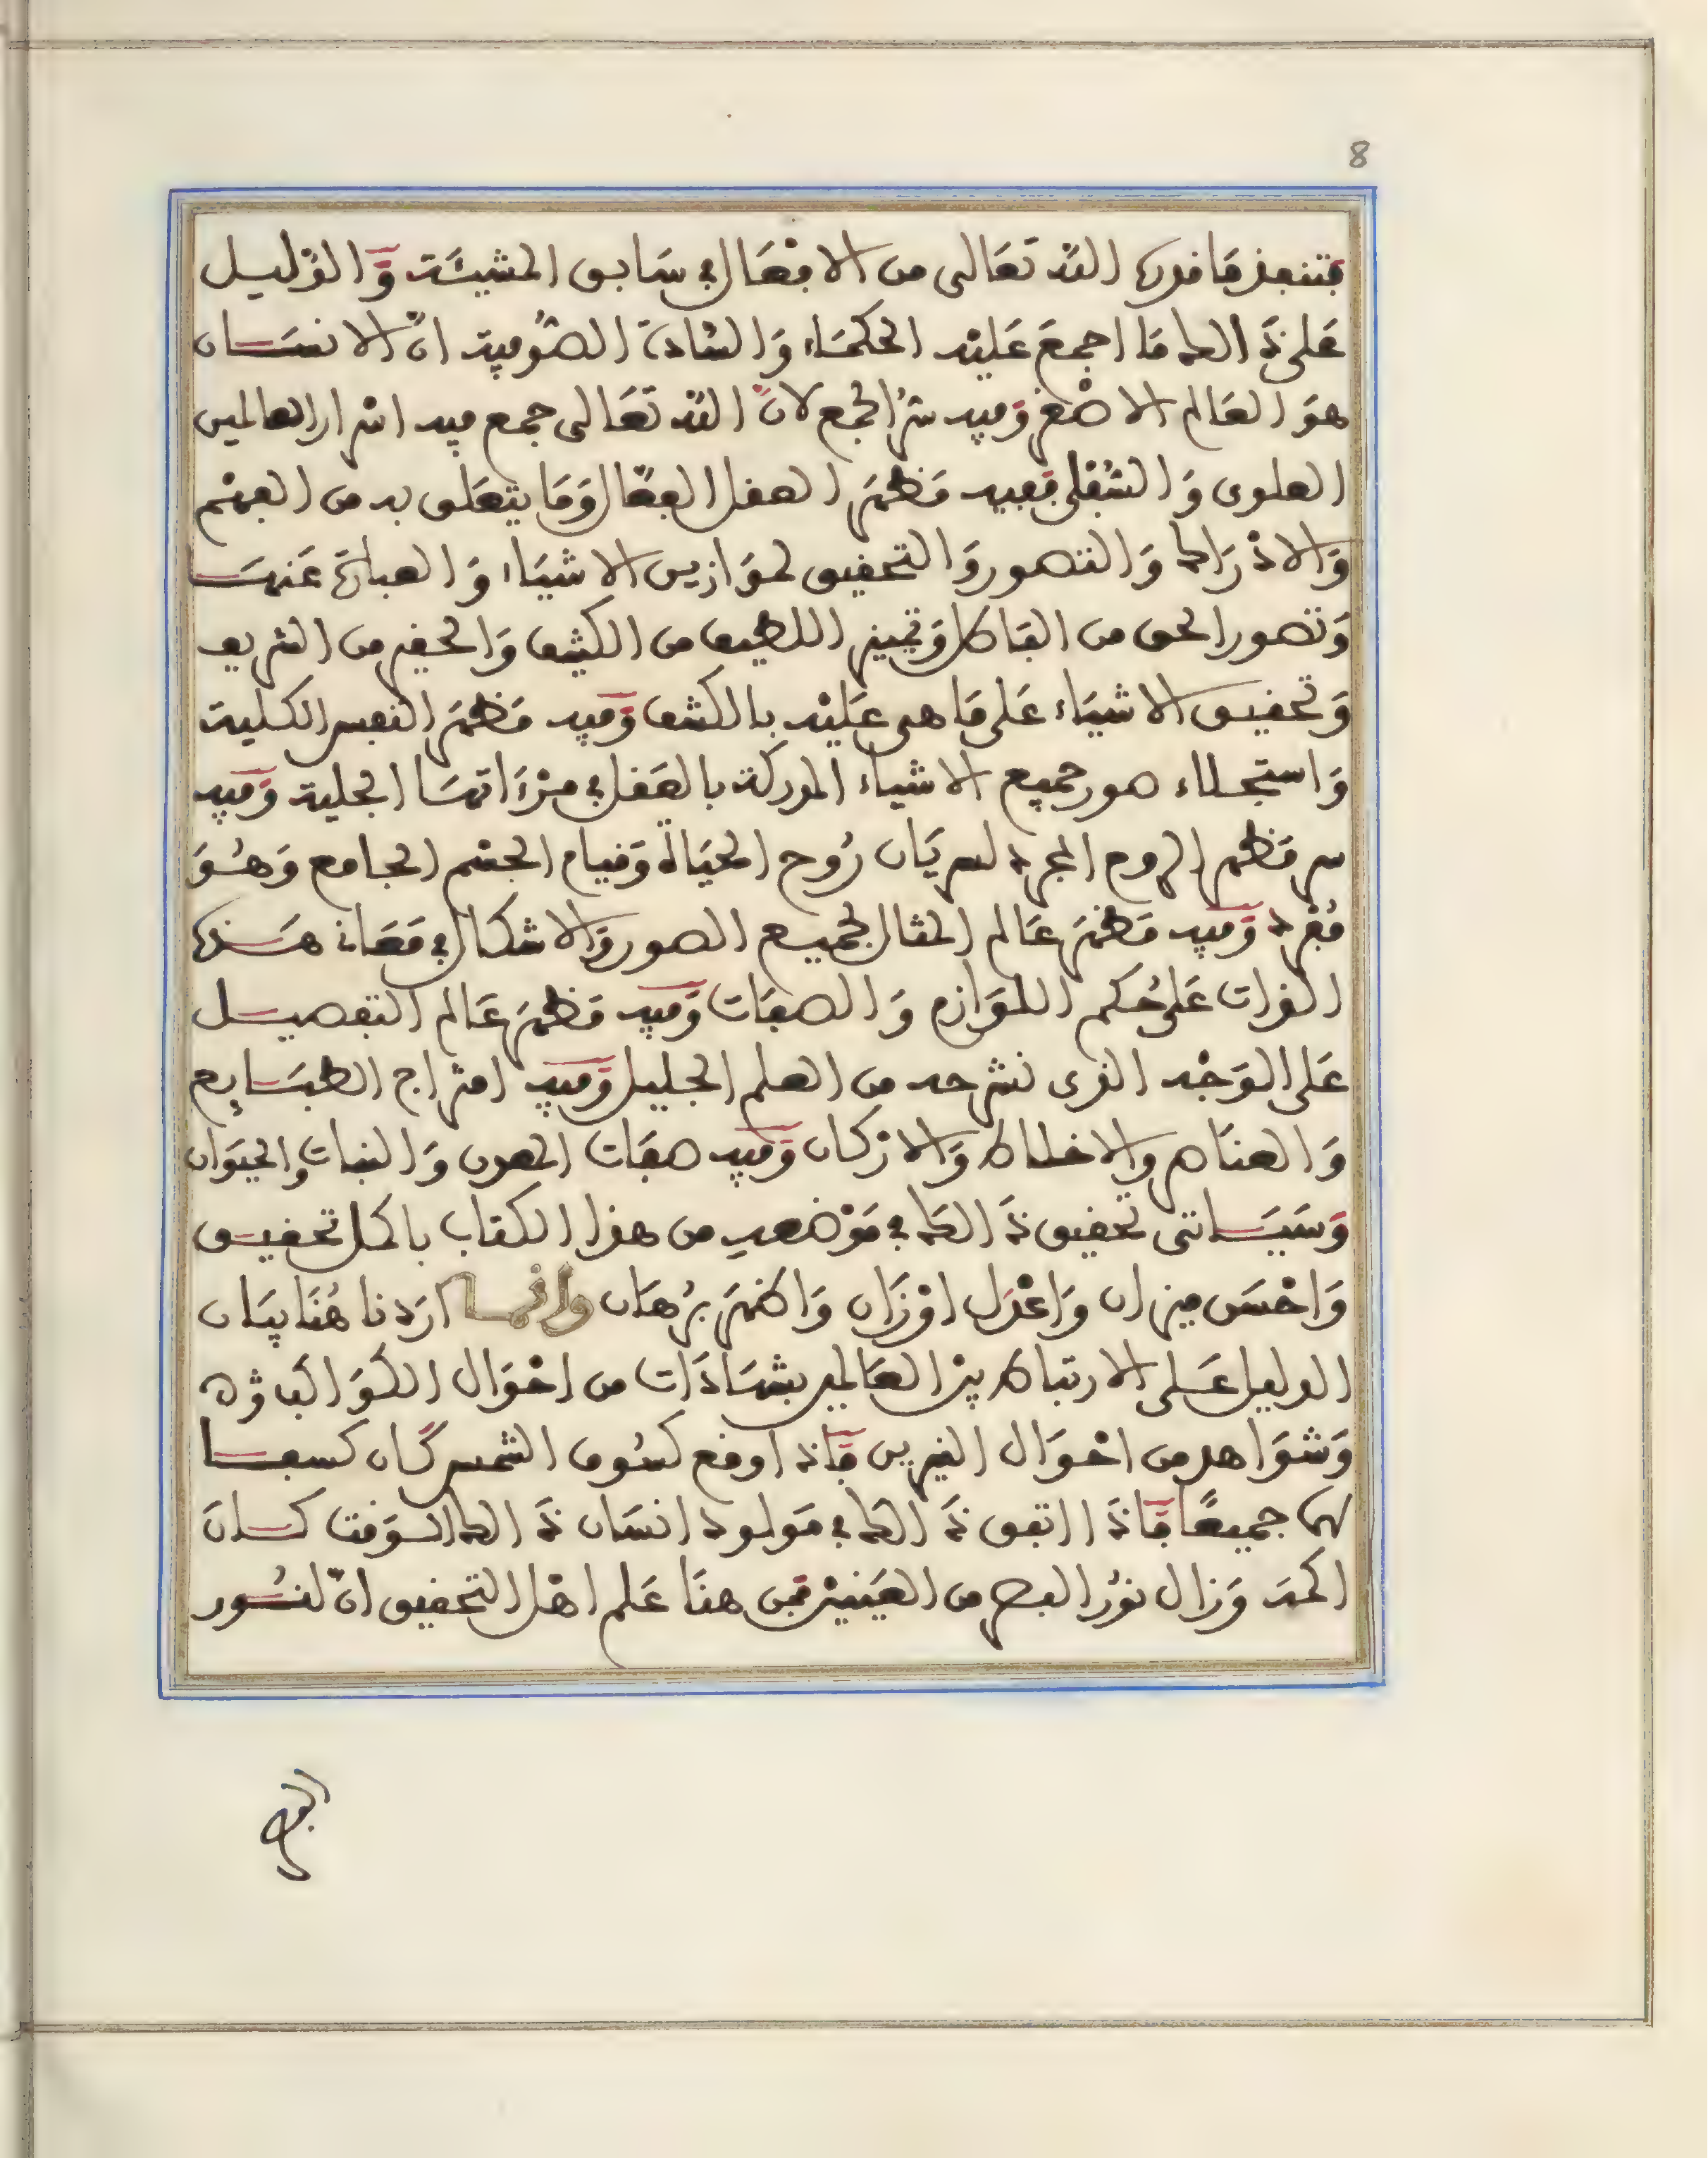 8
فتنفذ ما قدره الله تعالى من الافعال في سابق المشيئة والدليل
على ذلك ما اجمع عليه الحكماء والسادة الصوفية ان الانسان
هو العالم الاصغر وفيه سر الجمع لان الله تعالى جمع فيه اسرار العالمين
العلوى والسفلى ففيه مظهر العقل الفعال وما يتعلق به من الفهم
والادراك والتصور والتحقيق لموازين الاشياء والعبارة عنها
وتصور الحق من الباطل وتمييز اللطيف من الكثيف والحقير من الشريف
وتحقيق الاشياء على ما هى عليه بالكشف وفيه مظهر النفس الكلية
واستجلاء صور جميع الاشياء المدركة بالعقل في مرءاتها الجلية وفيه
سر مظهر الروح المجرد لسريان روح الحياة وقيام الجسم الجامع وهو
مفرد وفيه مظهر عالم المثال لجميع الصور والاشكال في معانى هذه
الذات على حكم اللوازم والصفات وفيه مظهر عالم التفصيل
على الوجه الذى نشرحه من العلم الجليل وفيه امتزاج الطبايع
والعناصر والاخلاط والاركان وفيه صفات المعدن والنبات والحيوان
وسياتى تحقيق ذلك في موضعه من هذا الكتاب باكمل تحقيق
واحسن ميزان واعدل اوزان واظهر برهان وانما اردنا هنا بيان
الدليل على الارتباط بين العالمين بشهادات من احوال
وشواهد من احوال النيرين فانه اوقع كسوف الشمس كان كسفا
لها جميعا فاذا اتفق ذلك في مولود انسان ذلك الوقت كان
اكمه وزال نور البصر من العينين فمن هنا علم اهل التحقيق ان لنور
البصر